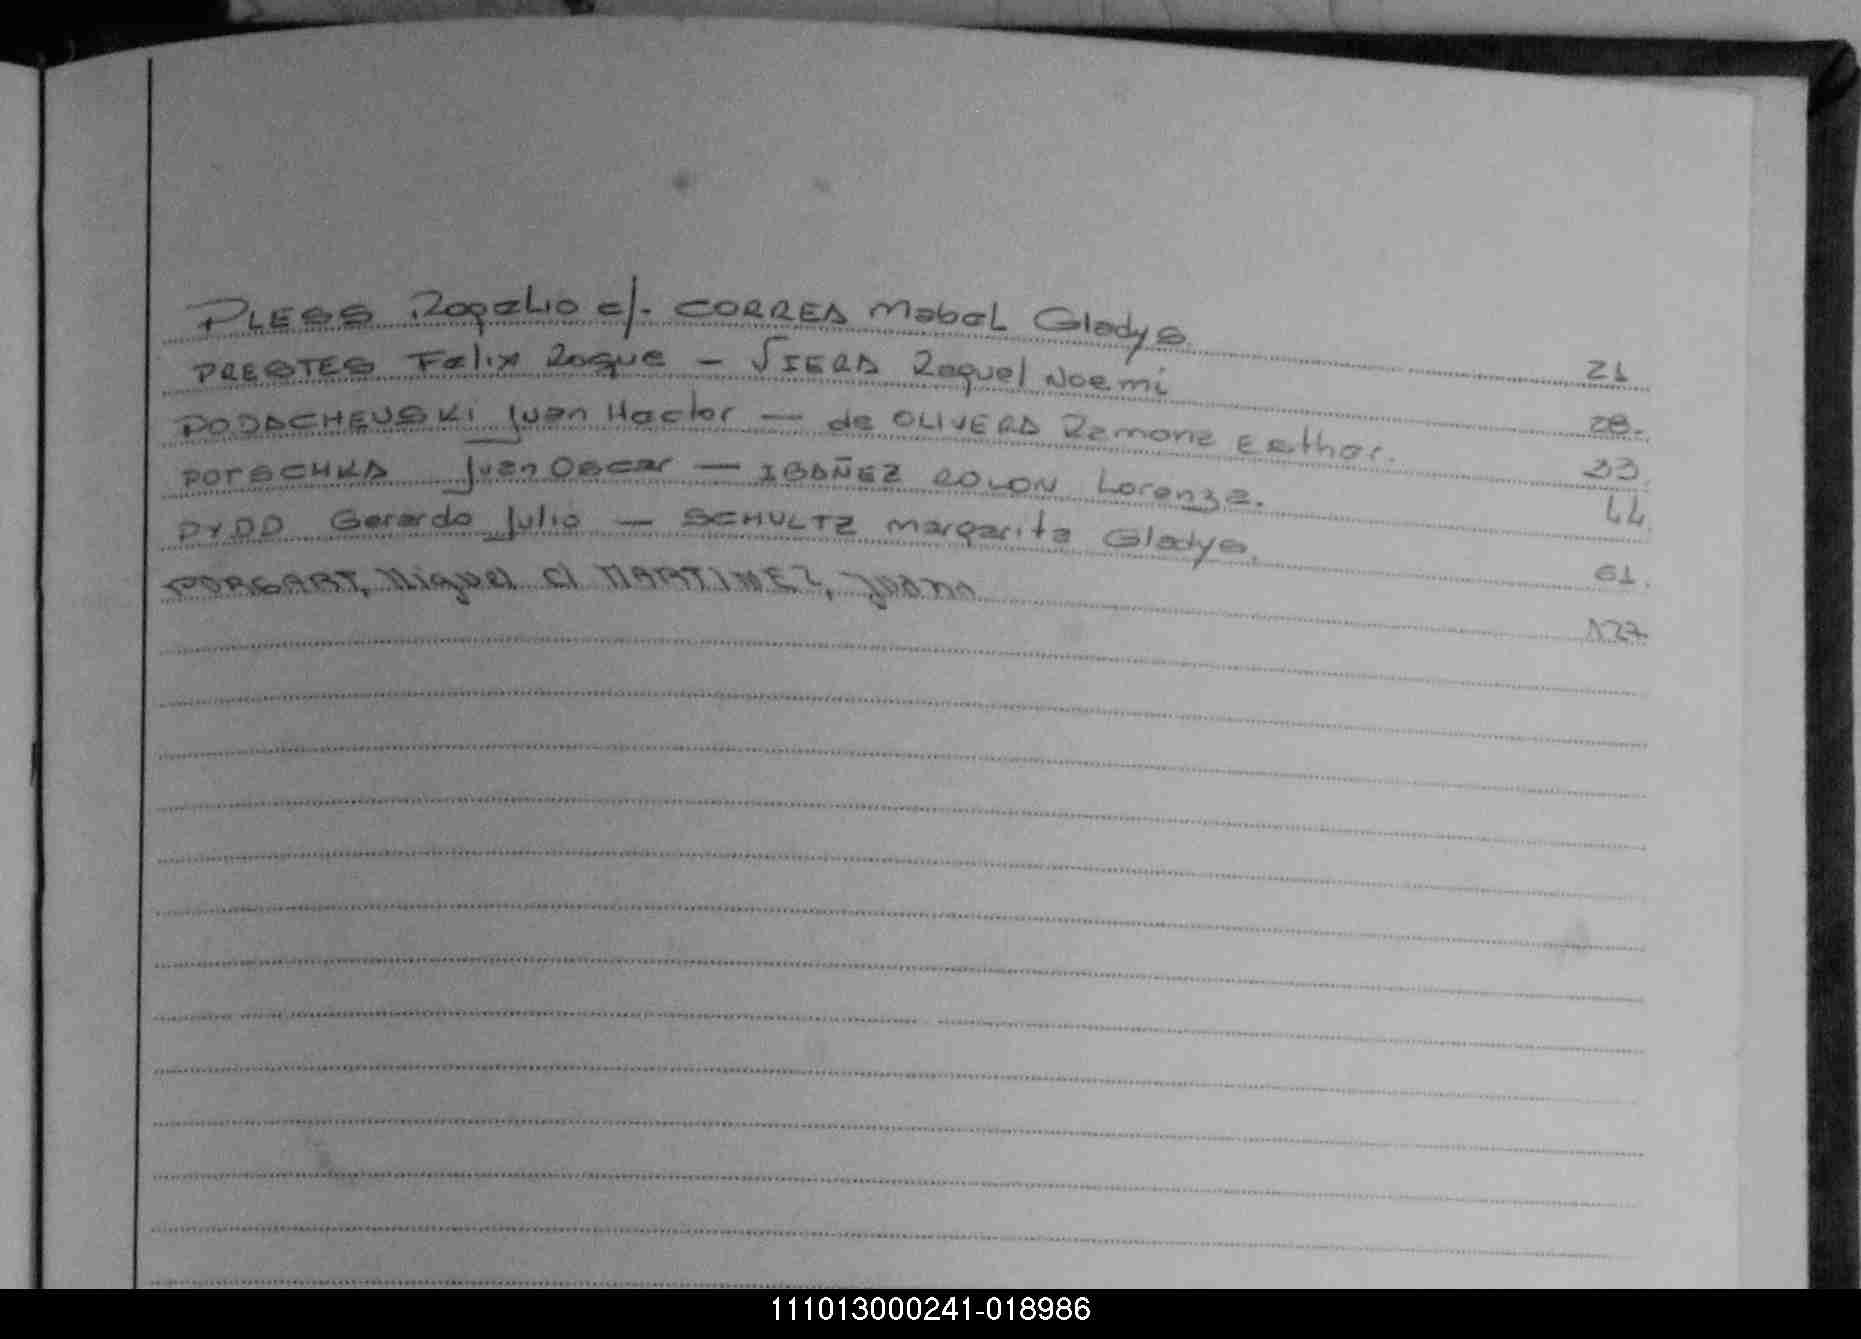 PLESS Rogelio c/. CORREA Mabel Gladys 21
PRESTES Felix Roque - VIERA Raquel Noemi 28-
PODACHEUSKI Juan Hector - de OLIVERA Ramona Esther. 33.
POTSCHKA Juan Oscar - IBAÑEZ ROLON Lorenza. 44
PYDD Gerardo Julio - SCHULTZ Margarita Gladys. 61.
Miguel c/ MARTINEZ, Juana 127
111013000241-018986